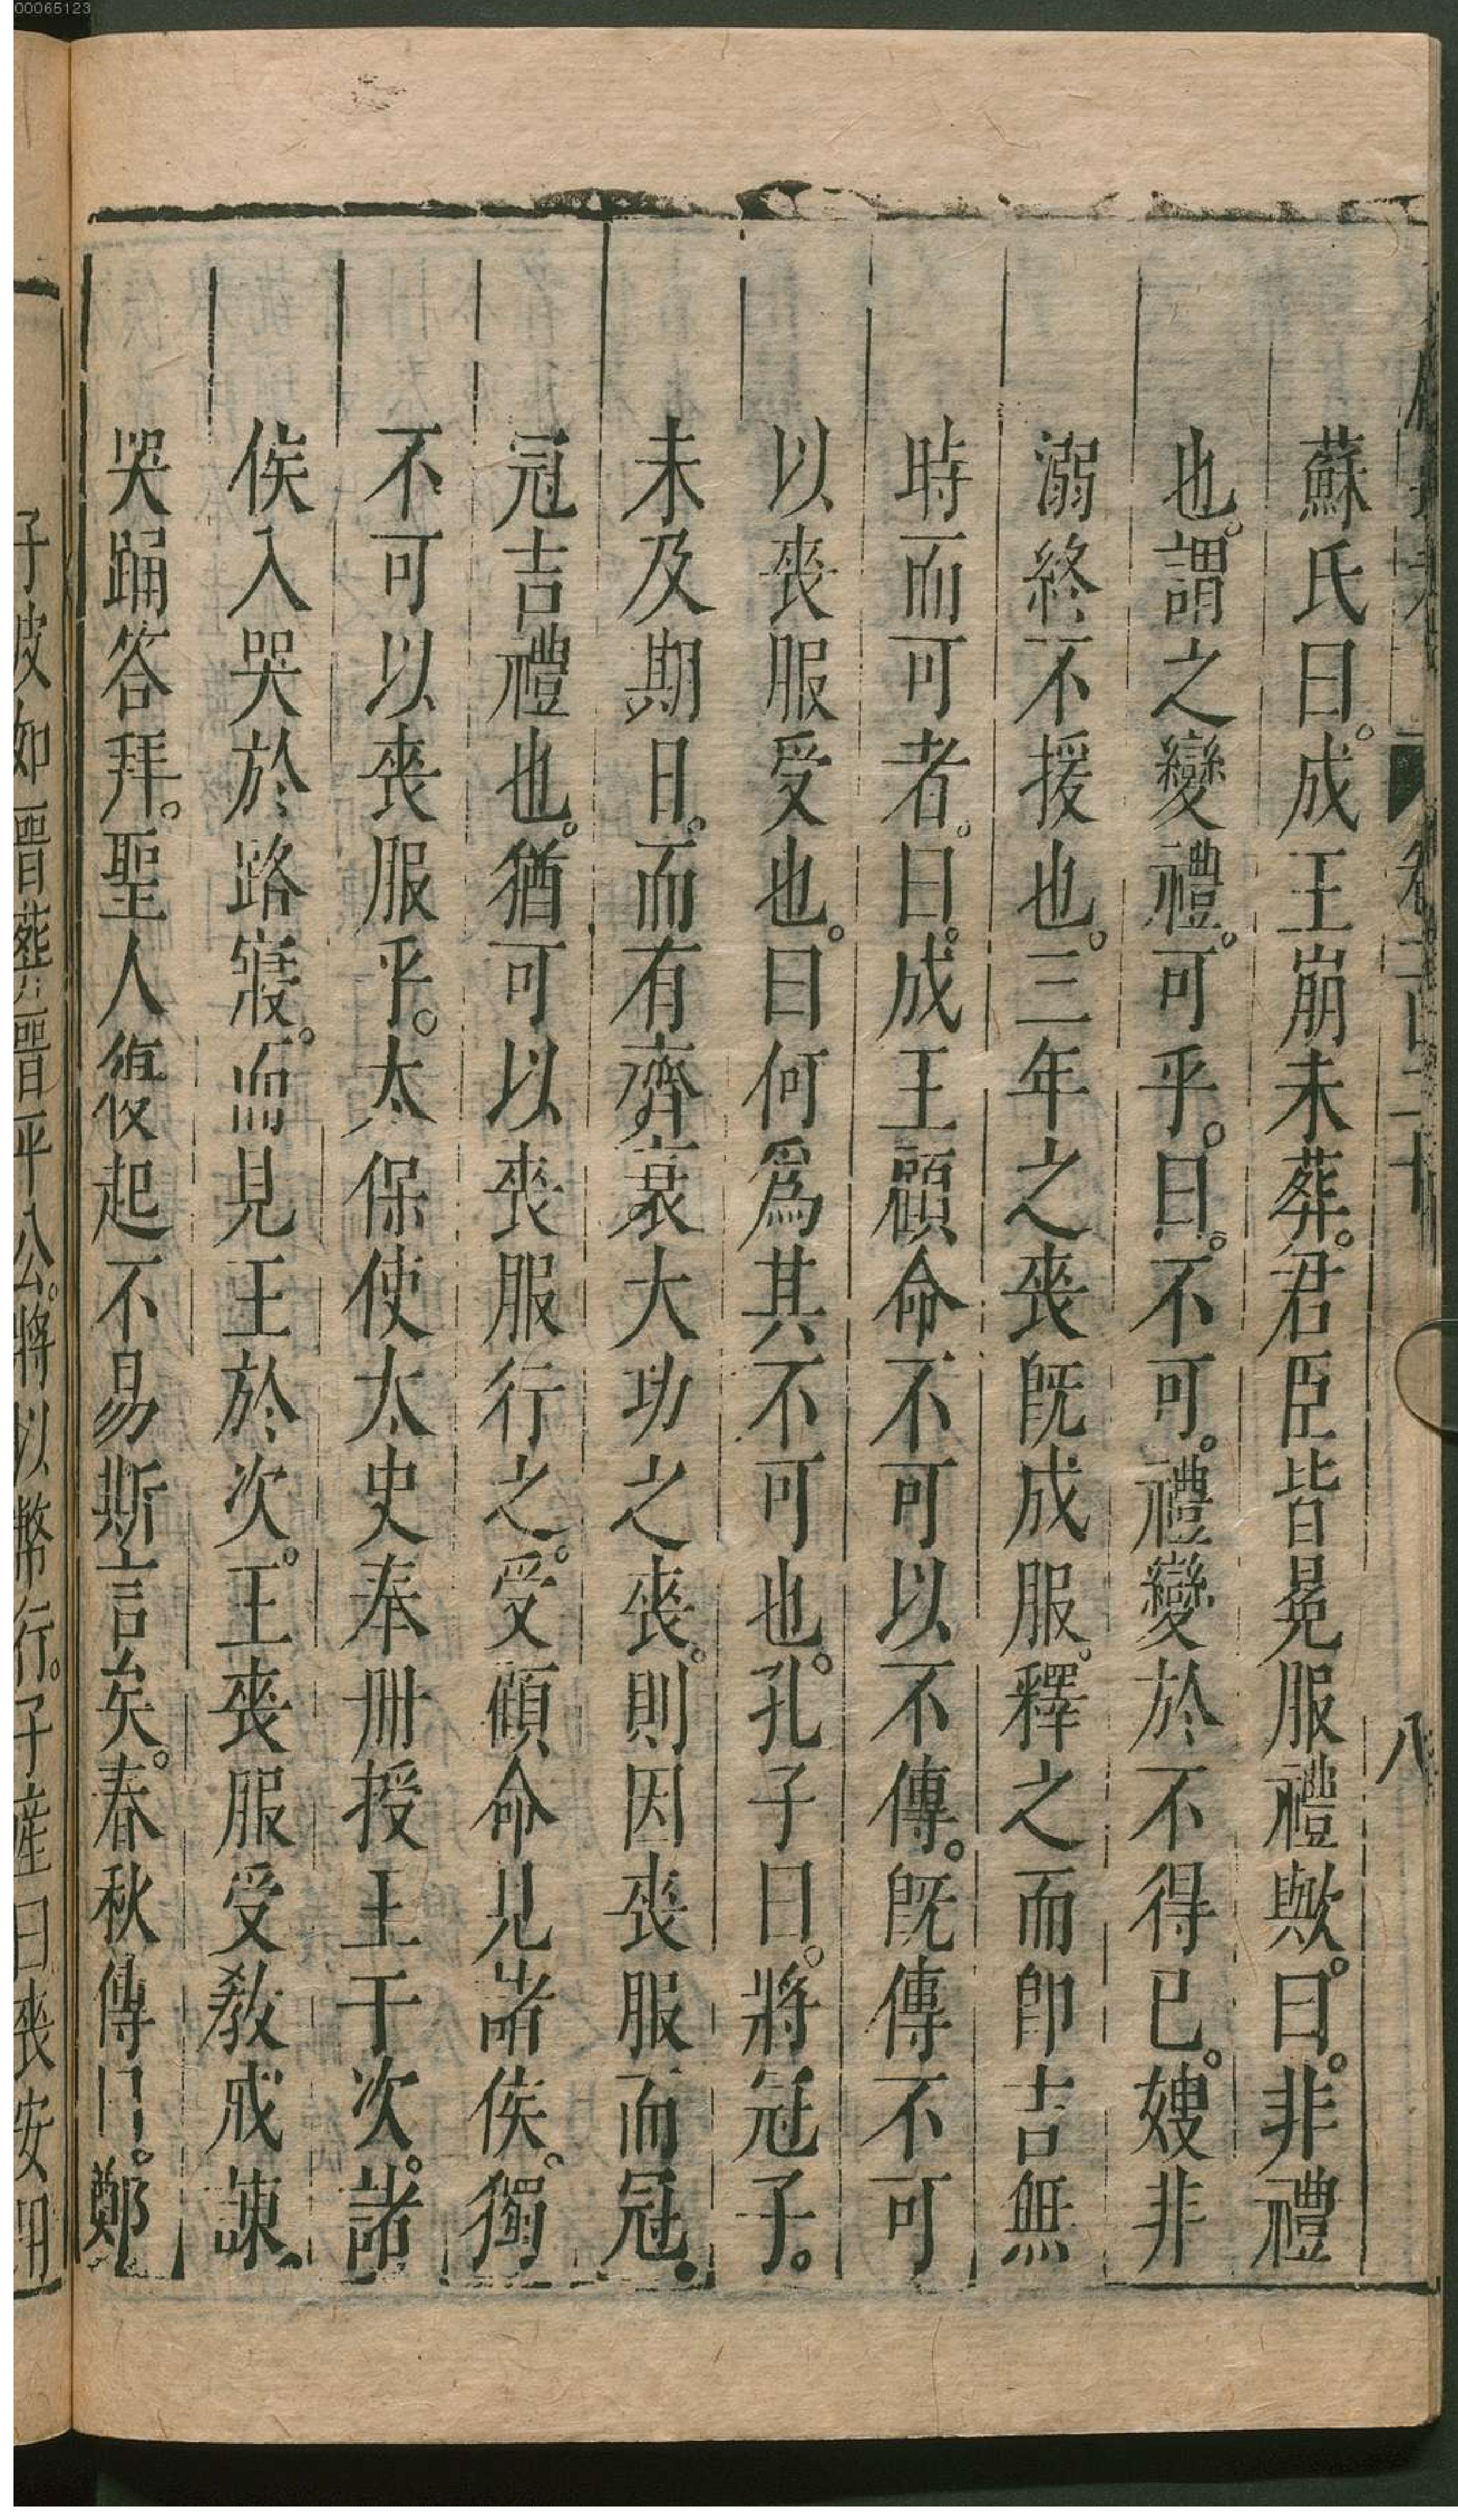 蘇氏曰。成王崩未葬。君臣皆冕服禮歟。曰。非禮
也。謂之變禮。可乎。曰。不可。禮變於不得已。嫂非
溺終不援也。三年之喪旣成服。釋之而卽吉無
時而可者。曰。成王顧命不可以不傳。旣傳不可
以喪服受也。曰何爲其不可也。孔子曰。將冠子。
未及期日。而有齊衰大功之喪。則因喪服而冠。
冠吉禮也。猶可以喪服行之。受顧命見諸侯。獨
不可以喪服乎。太保使太史奉冊授王于次。諸
侯入哭於路寢。而見王於次。王喪服受教戒諫
哭踊答拜。聖人復起不易斯言矣。春秋傳曰。鄭
子皮如晉葬晉平公。將以幣行。子產曰喪安用
八
00065123